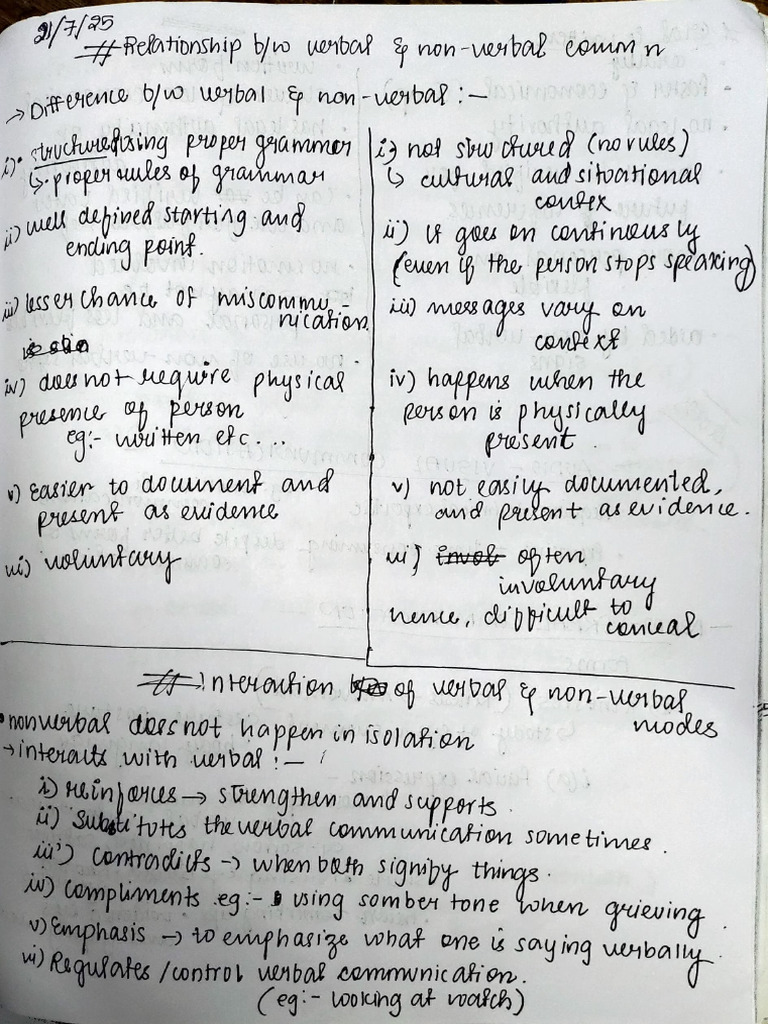 21/7/25
# Relationship b/w verbal & non-verbal comm n
→ Difference b/w verbal & non-verbal :-
i) • structured using proper grammar
↳ • proper rules of grammar
ii) well defined starting and
ending point.
iii) lesser chance of miscommu-
nication.
iv) does not require physical
presence of person
eg:- written etc...
v) easier to document and
present as evidence
vi) voluntary
i) not structured (no rules)
↳ cultural and situational
contex
ii) It goes on continously
(even if the person stops speaking)
iii) messages vary on
context
iv) happens when the
person is physically
present.
v) not easily documented,
and present as evidence.
vi) invol often
involuntary
hence, difficult to
conceal
# Interaction of verbal & non-verbal
modes
• nonverbal does not happen in isolation
→ interacts with verbal :-
i) reinforces → strengthen and supports.
ii) Substitutes the verbal communication sometimes.
iii) contradicts → when both signify things.
iv) compliments eg:- using somber tone when grieving.
v) Emphasis → to emphasize what one is saying verbally.
vi) Regulates/control verbal communication.
(eg:- looking at watch)